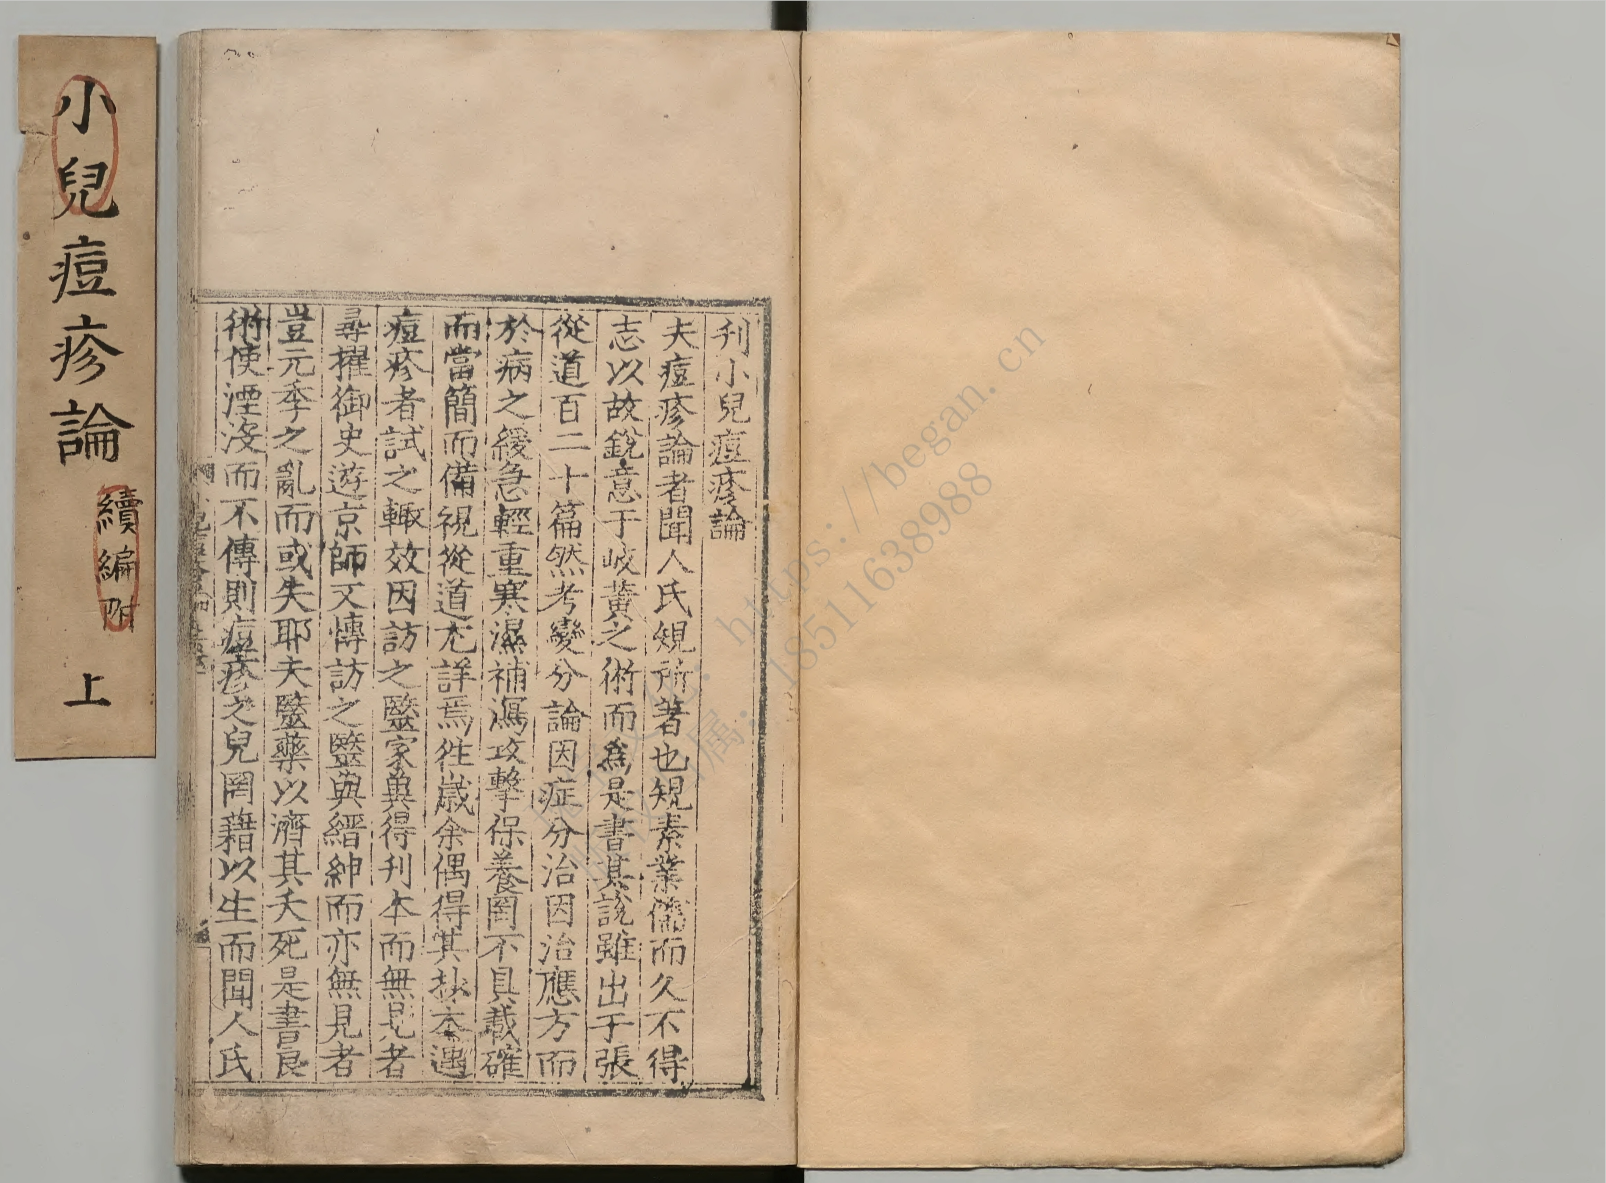 小兒痘疹論
續編附
上
刊小兒痘疹論
夫痘疹論者聞人氏規所著也規素業儒而久不得
志以故銳意于岐黃之術而爲是書其說雖出于張
從道百二十篇然考變分論因症分治因治應方而
於病之緩急輕重寒濕補瀉攻擊保養罔不具載確
而當簡而備視從道尤詳焉徃歲余偶得其抄本遇
痘疹者試之輙效因訪之醫家兾得刊本而無見者
尋擢御史遊京師又慱訪之醫與縉紳而亦無見者
豈元季之亂而或失耶夫醫藥以濟其夭死是書良
術使湮沒而不傳則痘疹之兒罔藉以生而聞人氏
https://began.cn
18511638988